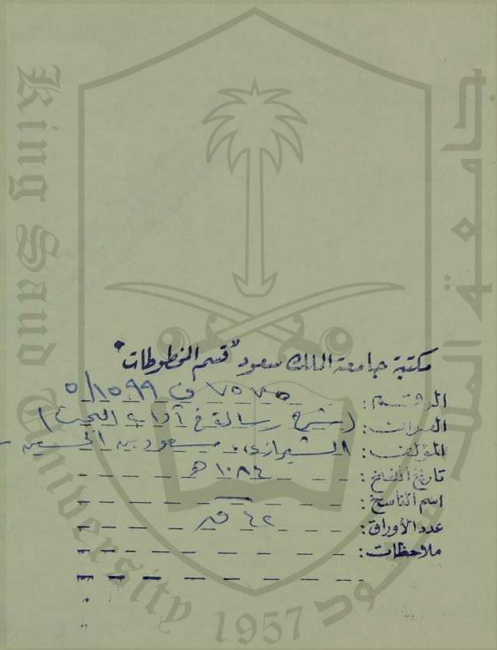 King Saud University
1957
مكتبة جامعة الملك سعود "قسم المخطوطات"
الرقـــم: ٧٥٧٥ ف ١٥٩٩/٥
العنوان: (شرح رسالة في آداب البحث)
المؤلف: الشيرازي، مسعود بن الحسين
تاريخ النسخ: ١٠٨٤ هـ
اسم الناسخ:
عدد الأوراق: ٤٢ ق
ملاحظات: